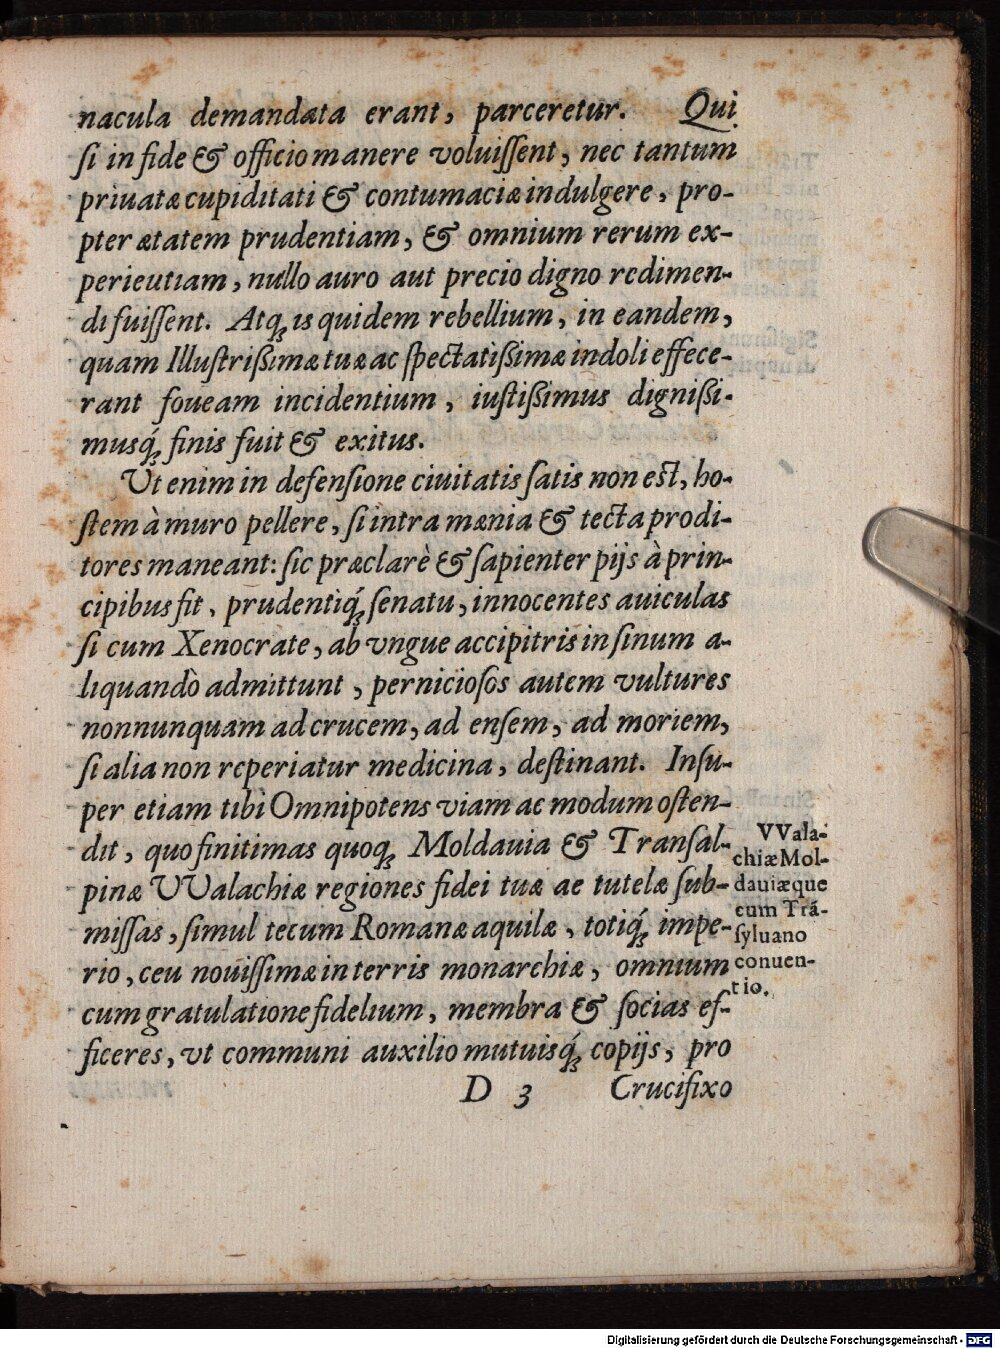 nacula demandata erant, parceretur. Qui
ſi in fide & officio manere voluiſſent, nec tantum
priuatæ cupiditati & contumaciæ indulgere, pro-
pter ætatem prudentiam, & omnium rerum ex-
perieutiam, nullo auro aut precio digno redimen-
di fuiſſent. Atq́ꝫ is quidem rebellium, in eandem,
quam Illuſtriſsimæ tuæ ac ſpectatiſsimæ indoli effece-
rant foueam incidentium, iuſtiſsimus digniſsi-
musq́ꝫ finis fuit & exitus.
Ut enim in defenſione ciuitatis ſatis non eſt, ho-
ſtem à muro pellere, ſi intra mænia & tecta prodi-
tores maneant: ſic præclarè & ſapienter pijs à prin-
cipibus fit, prudentiq́ꝫ ſenatu, innocentes auiculas
ſi cum Xenocrate, ab vngue accipitris in ſinum a-
liquandò admittunt, pernicioſos autem vultures
nonnunquam ad crucem, ad enſem, ad moriem,
ſi alia non reperiatur medicina, deſtinant. Inſu-
per etiam tibi Omnipotens viam ac modum oſten-
dit, quo finitimas quoqꝫ Moldauia & Tranſal-
pinæ VValachiæ regiones fidei tuæ ac tutelæ ſub-
miſſas, ſimul tecum Romanæ aquilæ, totiq́ꝫ impe-
rio, ceu nouiſſimæ in terris monarchiæ, omnium
cum gratulatione fidelium, membra & ſocias ef-
ficeres, vt communi auxilio mutuisq́ꝫ copijs, pro
D 3 Crucifixo
VVala-
chiæ Mol-
dauiæque
cum Trá-
ſyluano
conuen-
tio.
Digitalisierung gefördert durch die Deutsche Forschungsgemeinschaft - DFG